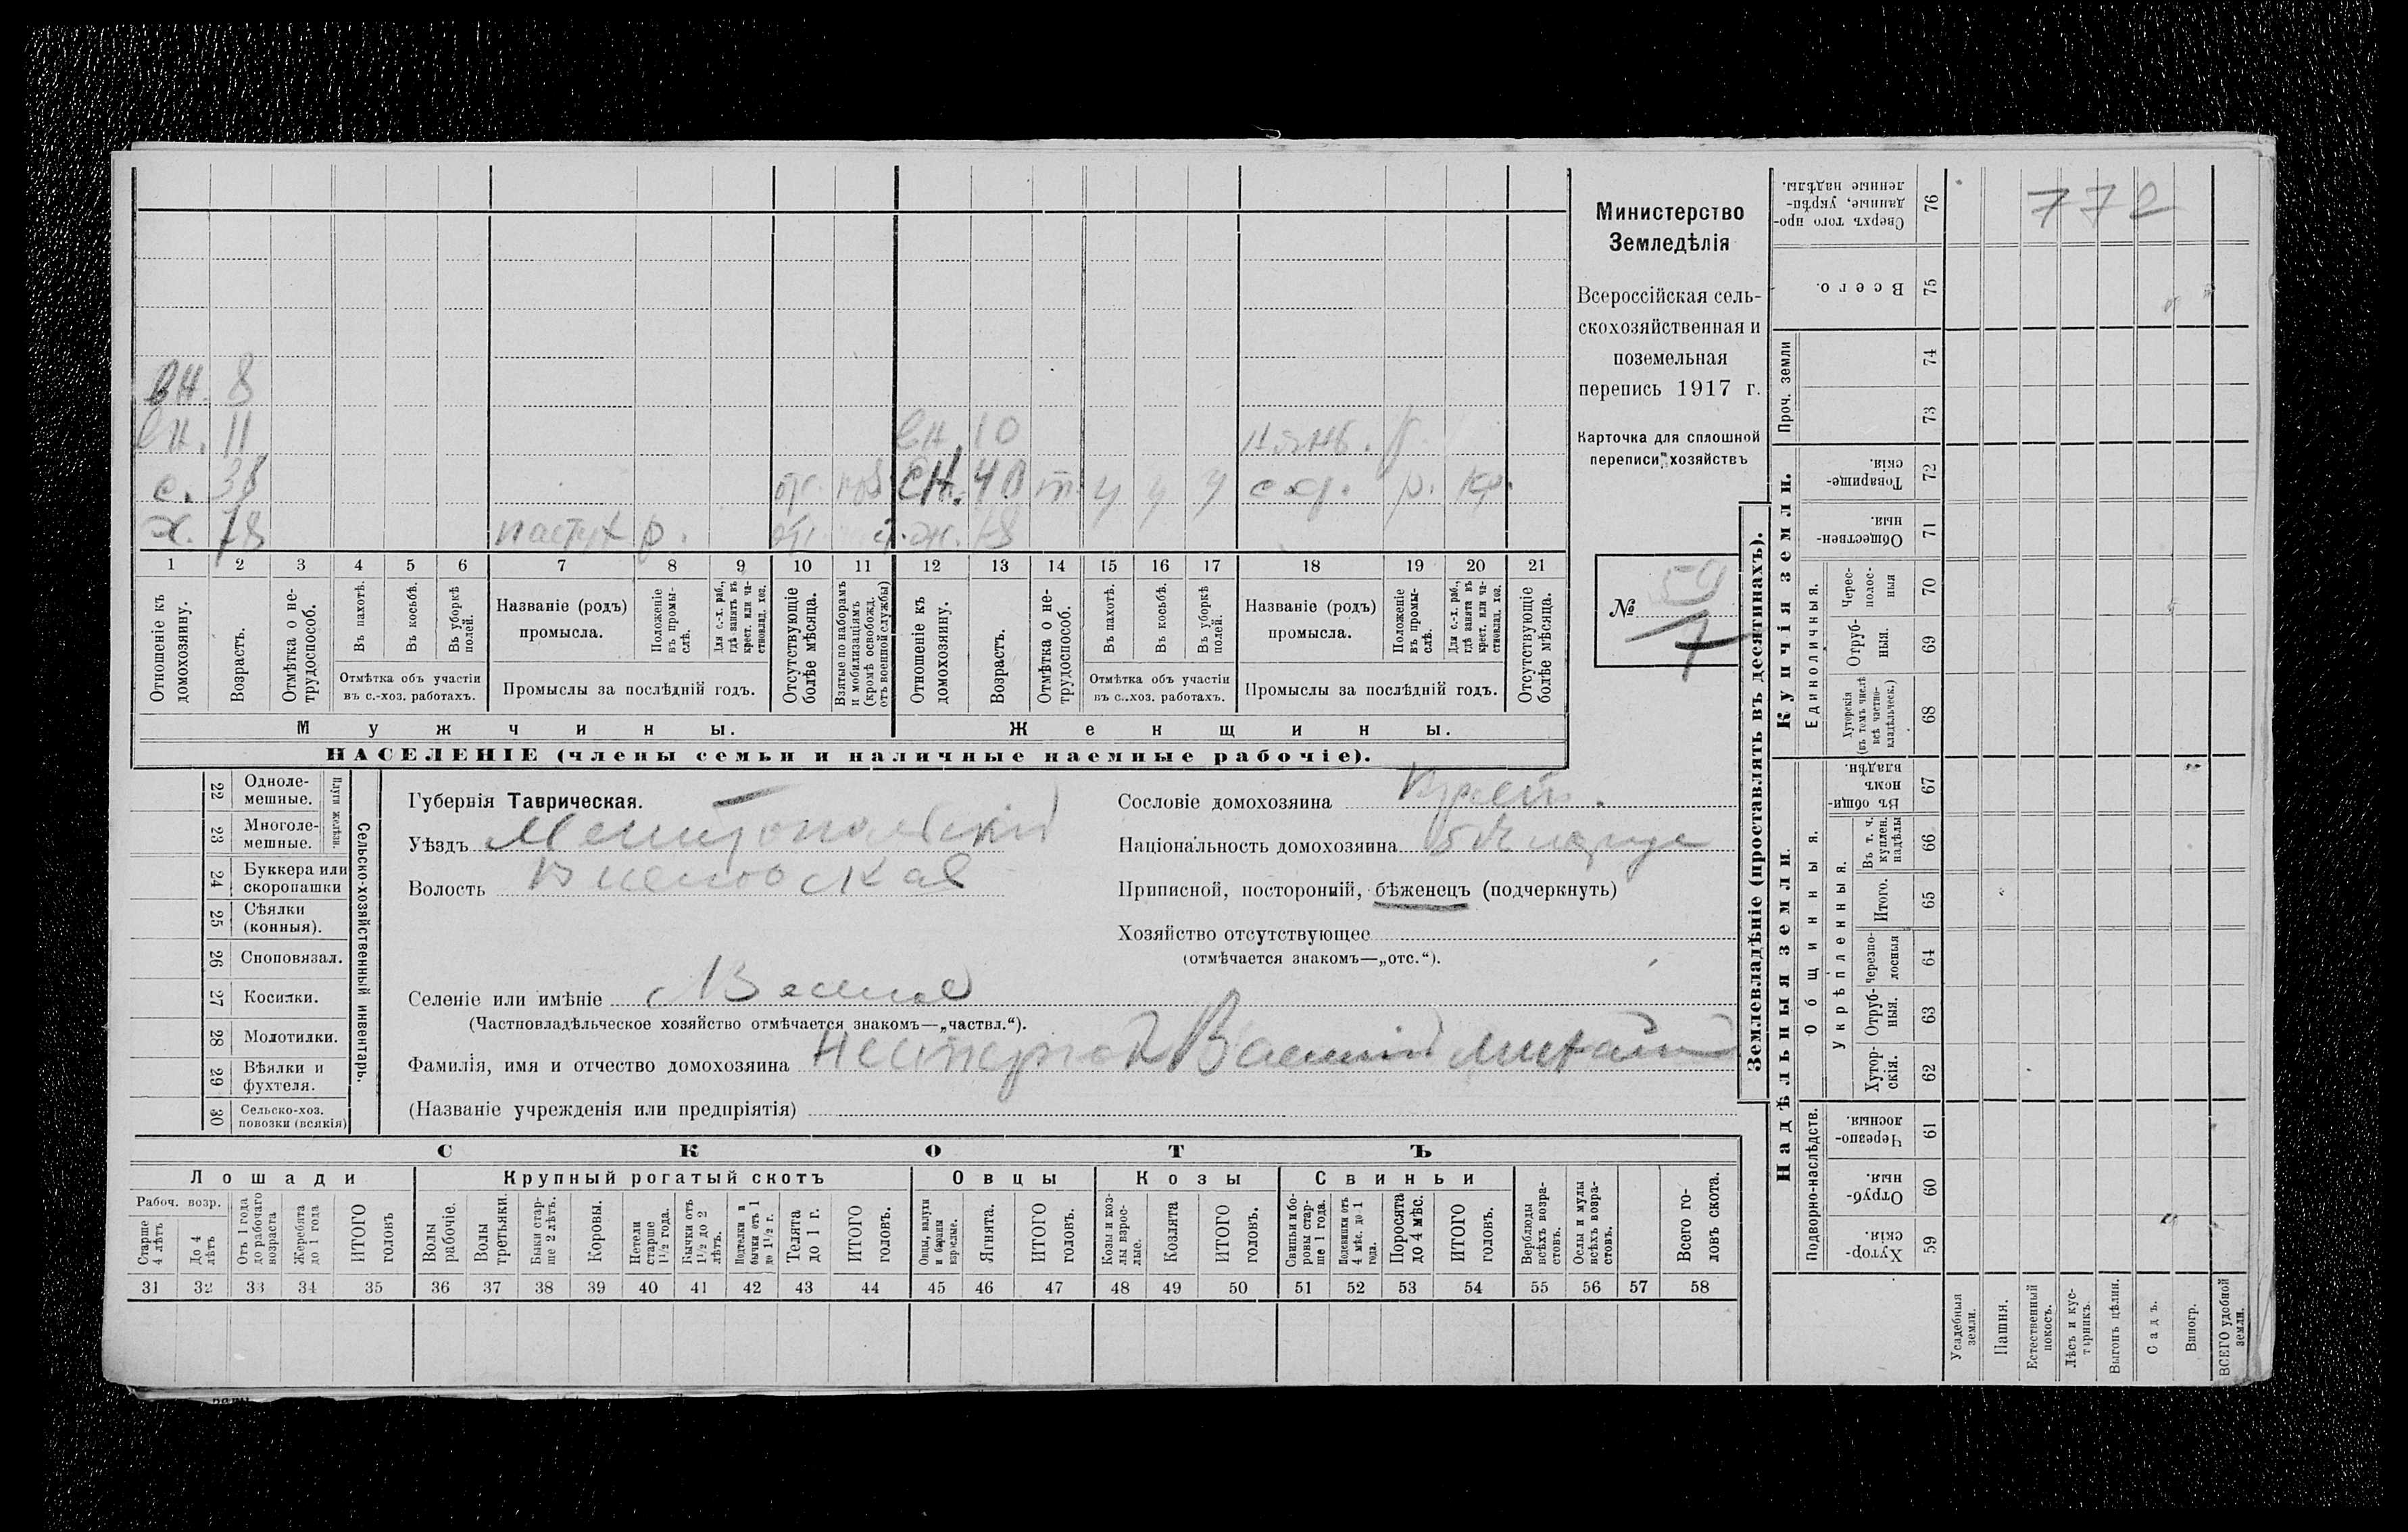 Министерство
Земледѣлія
Всероссійская сель-
скохозяйственная и
поземельная
перепись 1917 г.
Карточка для сплошной
переписи хозяйствъ
№ 59
7
772
вн. 8
вн. 11 вн. 10 р.
с. 38 от. сн. 40 р. кр.
х. 78 пастух р. от. ж.
1 2 3 4 5 6 7 8 9 10 11 12 13 14 15 16 17 18 19 20 21
Отношеніе къ домохозяину.
Возрастъ.
Отмѣтка о не-трудоспособ.
Въ пахотѣ.
Въ косьбѣ.
Въ уборкѣ полей.
Отмѣтка объ участіи въ с.-хоз. работахъ.
Названіе (родъ) промысла.
Положеніе въ промы-слѣ.
Для с.-х. раб., гдѣ занятъ въ крест. или ча-стновлад. хоз.
Промыслы за послѣдній годъ.
Отсутствующіе болѣе мѣсяца.
Взятые по наборамъ и мобилизаціямъ (кромѣ освобожд. отъ военной службы)
Отношеніе къ домохозяину.
Возрастъ.
Отмѣтка о не-трудоспособ.
Въ пахотѣ.
Въ косьбѣ.
Въ уборкѣ полей.
Отмѣтка объ участіи въ с.-хоз. работахъ.
Названіе (родъ) промысла.
Положеніе въ промы-слѣ.
Для с.-х. раб., гдѣ занята въ крест. или ча-стновлад. хоз.
Промыслы за послѣдній годъ.
Отсутствующіе болѣе мѣсяца.
Мужчины.
Женщины.
НАСЕЛЕНІЕ (члены семьи и наличные наемные рабочіе).
22 Одноле-мешные.
23 Многоле-мешные.
Плуги желѣзн.
24 Буккера или скоропашки
25 Сѣялки (конныя).
26 Сноповязал.
27 Косилки.
28 Молотилки.
29 Вѣялки и фухтеля.
30 Сельско-хоз. повозки (всякія)
Сельско-хозяйственный инвентарь.
Губернія Таврическая.
Уѣздъ Мелитопольскій
Волость
Селеніе или имѣніе
(Частновладѣльческое хозяйство отмѣчается знакомъ—„частвл.“).
Фамилія, имя и отчество домохозяина Василій
(Названіе учрежденія или предпріятія)
Сословіе домохозяина Крест.
Національность домохозяина
Приписной, посторонній, бѣженецъ (подчеркнуть)
Хозяйство отсутствующее
(отмѣчается знакомъ—„отс.“).
СКОТЪ
Лошади
Крупный рогатый скотъ
Овцы
Козы
Свиньи
Рабоч. возр.
Старше 4 лѣтъ
До 4 лѣтъ
Отъ 1 года до рабочаго возраста
Жеребята до 1 года
ИТОГО головъ
Волы рабочіе.
Волы третьяки.
Быки стар-ше 2 лѣтъ.
Коровы.
Нетели старше 1½ года.
Бычки отъ 1½ до 2 лѣтъ.
Подтелки и бычки отъ 1 до 1½ г.
Телята до 1 г.
ИТОГО головъ.
Овцы, валухи и бараны взрослые.
Ягнята.
ИТОГО головъ.
Козы и коз-лы взрос-лые.
Козлята
ИТОГО головъ.
Свиньи и бо-ровы стар-ше 1 года.
Подсвинки отъ 4 мѣс. до 1 года.
Поросята до 4 мѣс.
ИТОГО головъ.
Верблюды всѣхъ возра-стовъ.
Ослы и мулы всѣхъ возра-стовъ.
Всего го-ловъ скота.
31 32 33 34 35 36 37 38 39 40 41 42 43 44 45 46 47 48 49 50 51 52 53 54 55 56 57 58
Землевладѣніе (проставлять въ десятинахъ).
Сверхъ того про-данные, укрѣп-ленные надѣлы. 76
Всего. 75
Проч. земли
74
73
Купчія земли.
Товарище-скія. 72
Обществен-ныя. 71
Единоличныя.
Черес-полос-ныя 70
Отруб-ныя. 69
Хуторскія (въ томъ числѣ всѣ частно-владѣльческ.) 68
Надѣльныя земли
Общинныя.
Въ общи-номъ владѣн. 67
Укрѣпленныя.
Въ т. ч. куплен. надѣлы 66
Итого. 65
Черезпо-лосныя 64
Отруб-ныя. 63
Хутор-скія. 62
Подворно-наслѣдств.
Черезпо-лосныя. 61
Отруб-ныя. 60
Хутор-скія. 59
Усадебныя земли.
Пашня.
Естественный покосъ.
Лѣсъ и кус-тарникъ.
Выгонъ цѣлин.
Садъ.
Виногр.
ВСЕГО удобной земли.